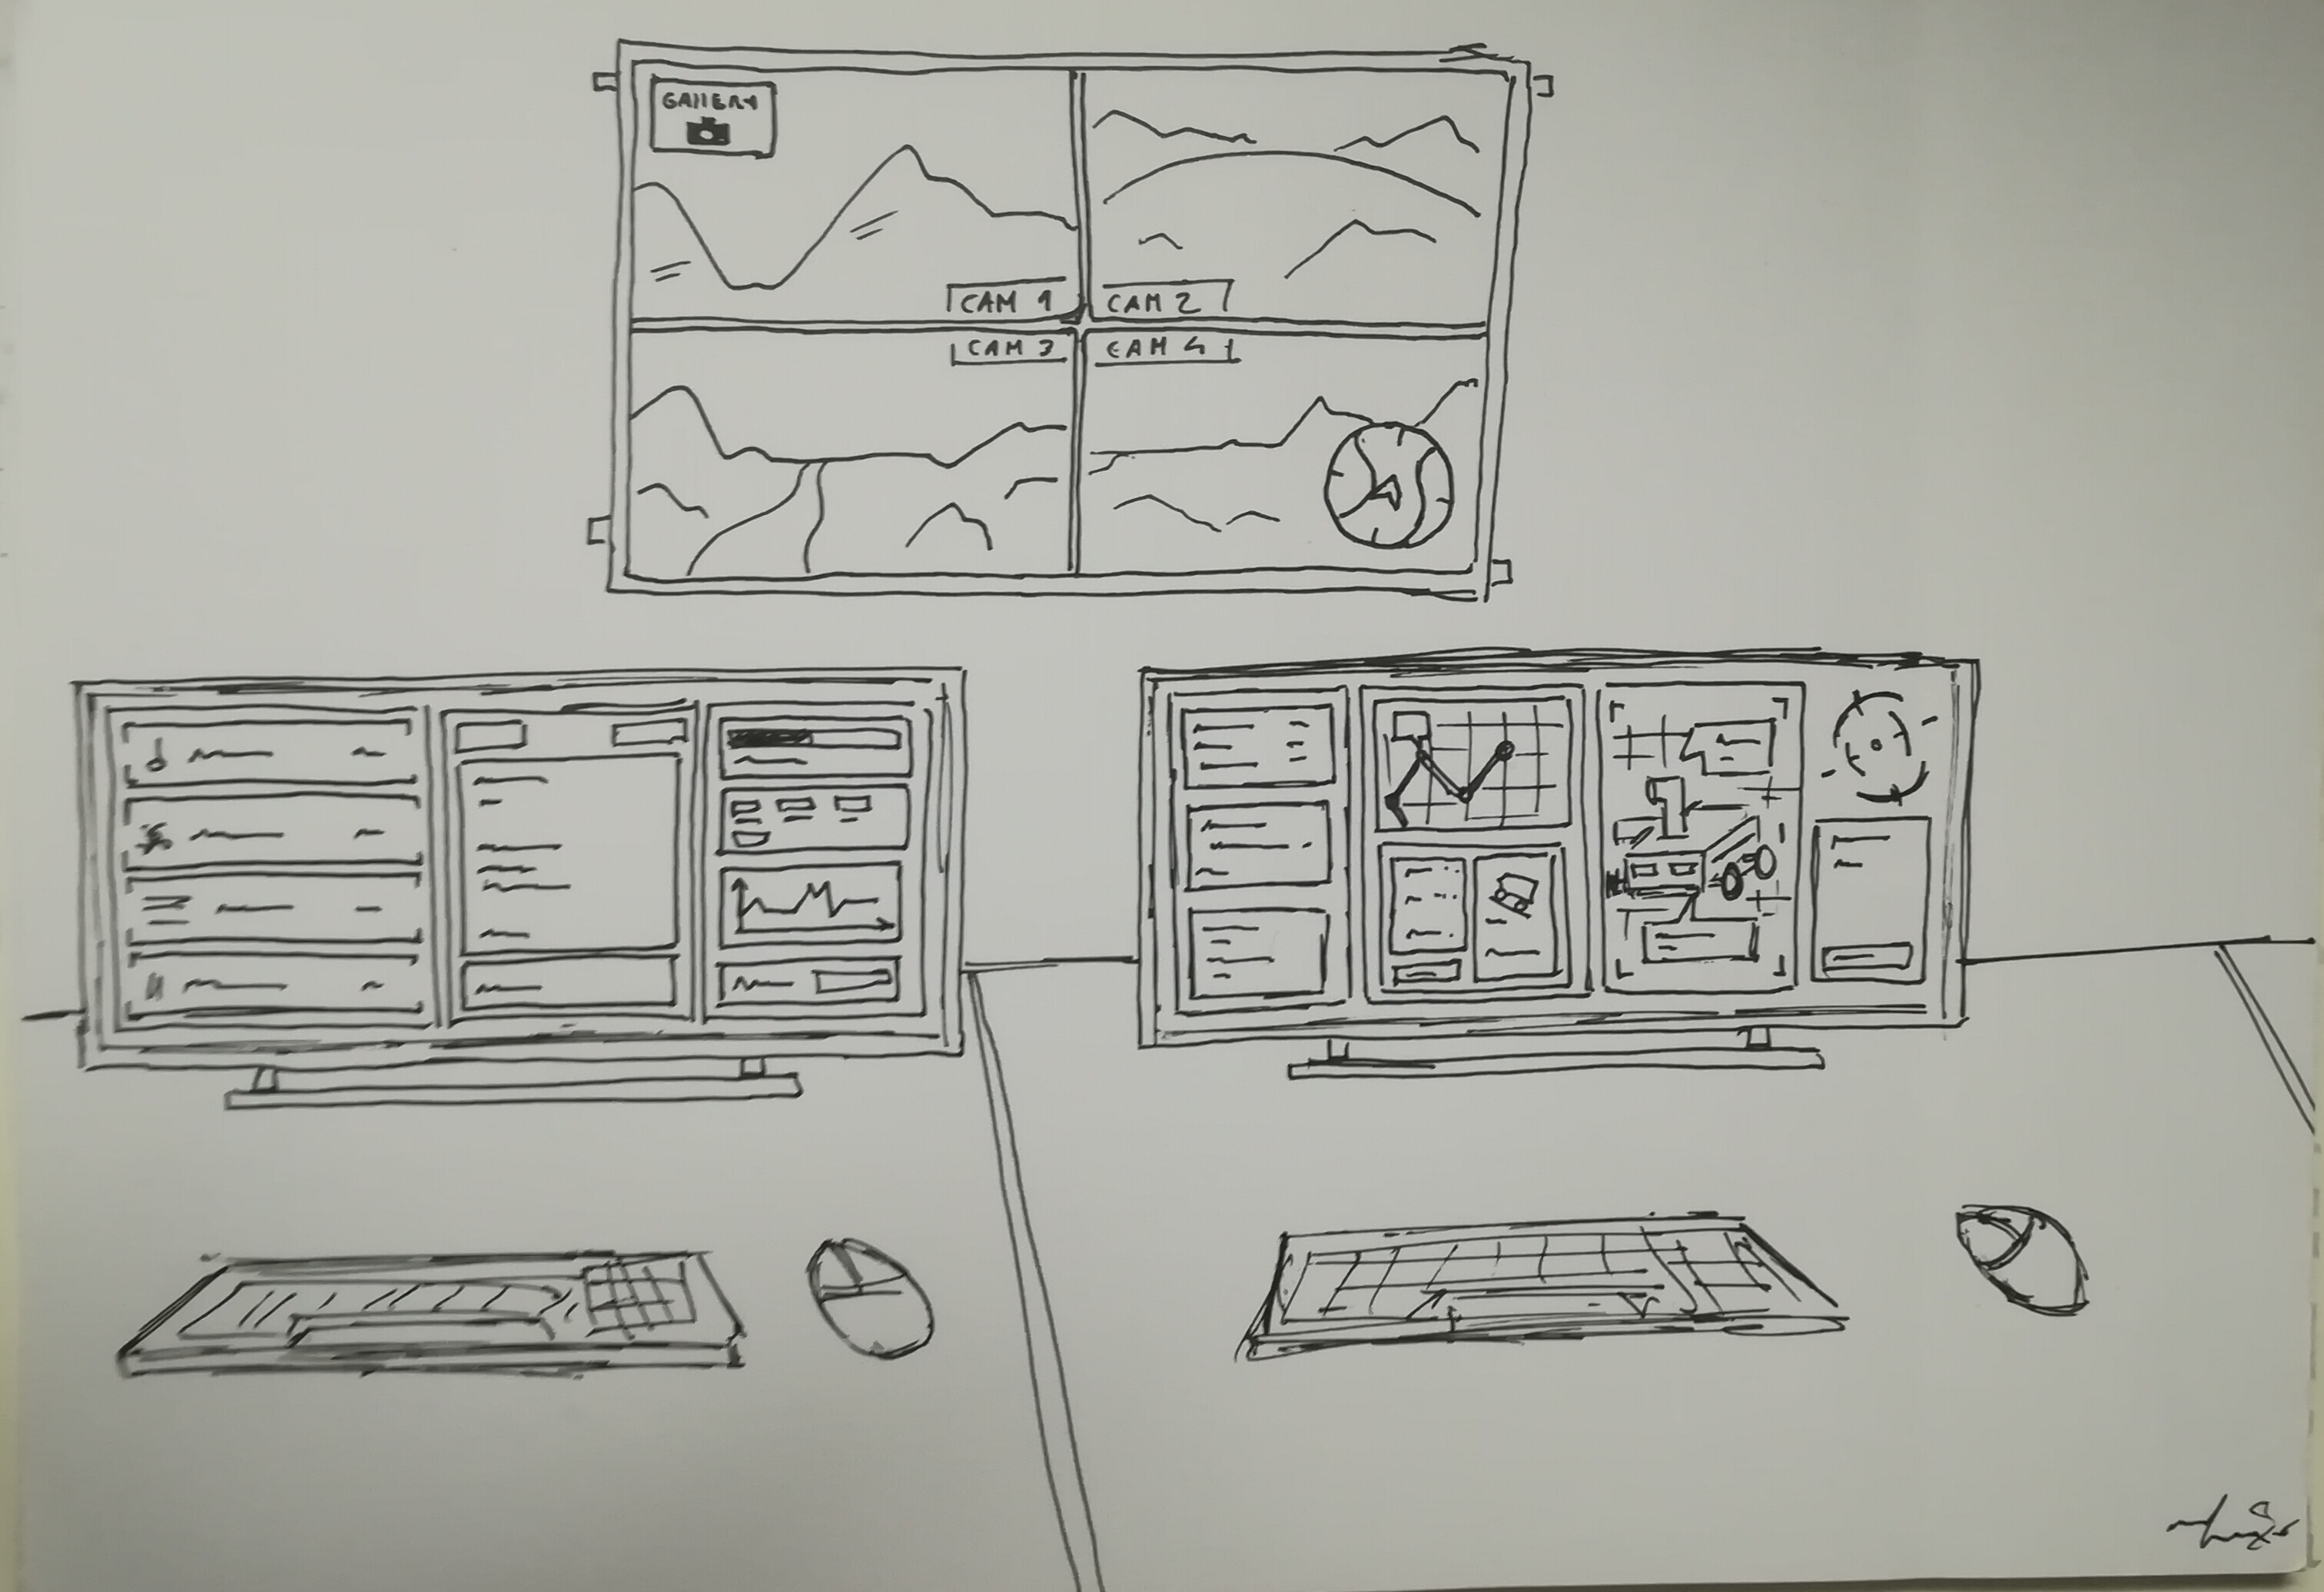 GALLERY
CAM 1
CAM 2
CAM 3
CAM 4